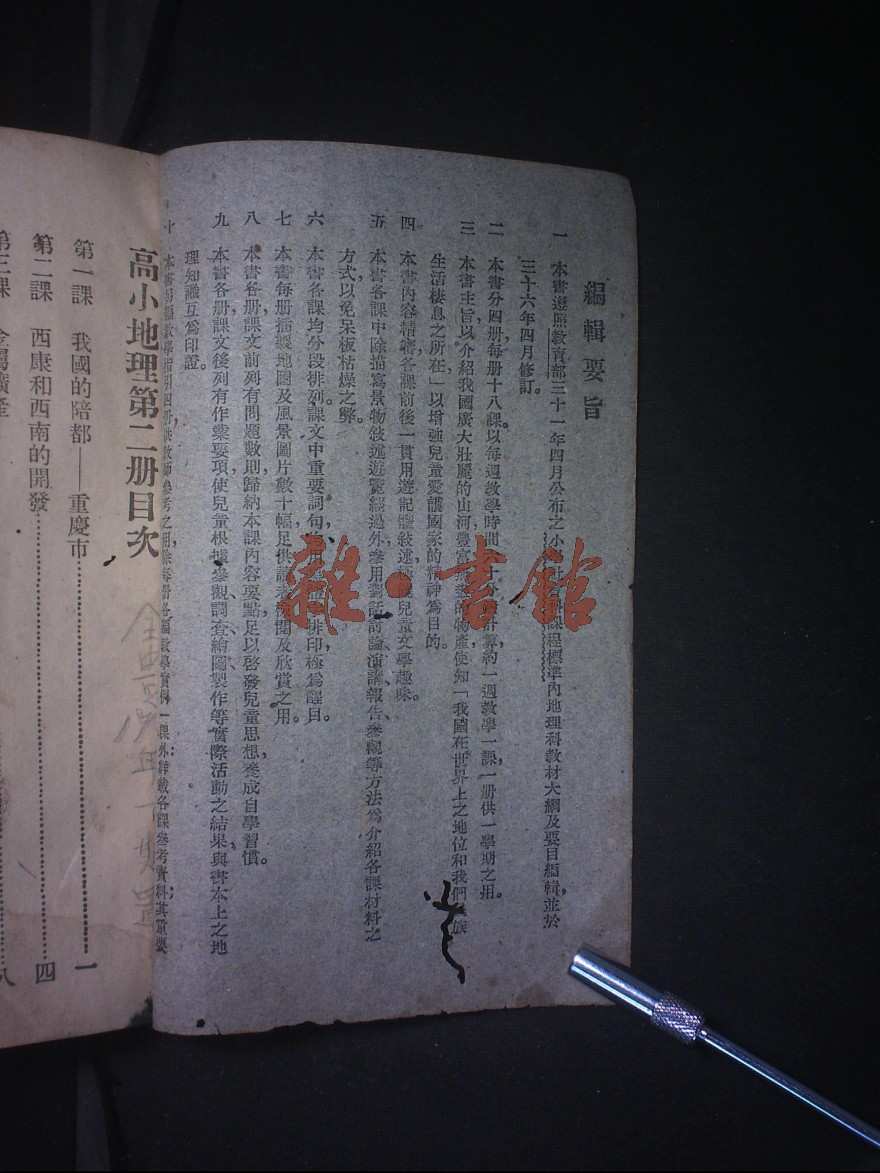 編輯要旨
一 本書遵照教育部三十一年四月公布之小學 課程標準內地理科教材大綱及要目編輯,並於
三十六年四月修訂。
二 本書分四册,每册十八課。以每週教學時間 十分 計算,約一週教學一課,一册供一學期之用。
三 本書主旨以介紹我國廣大壯麗的山河,豐富 的物產,使知「我國在世界上之地位和我們 族
生活棲息之所在」以增強兒童愛護國家的精神爲目的。
四 本書內容精審,各課前後一貫,用遊記體敍述, 兒童文學趣味。
五 本書各課中除描寫景物敍述遊覽經過外,參用對話、討論、演講、報告、參觀等方法,爲介紹各課材料之
方式,以免呆板枯燥之弊。
六 本書各課均分段排列,課文中重要詞句, 用 排印,極爲醒目。
七 本書每册插製地圖及風景圖片數十幅,足供 閱及欣賞之用。
八 本書各册,課文前列有問題數則,歸納本課內容要點,足以啓發兒童思想,養成自學習慣。
九 本書各册,課文後列有作業要項,使兒童根據參觀、調查、繪圖、製作等實際活動之結果,與書本上之地
理知識互爲印證。
十 本書另編教學指引四册,供教師參考之用,除每册各編教學實例一課外,詳載各課參考資料,其重要
高小地理第二册目次
第一課 我國的陪都——重慶市 一
第二課 西康和西南的開發 四
第三課 金屬礦產 八
雜·書館